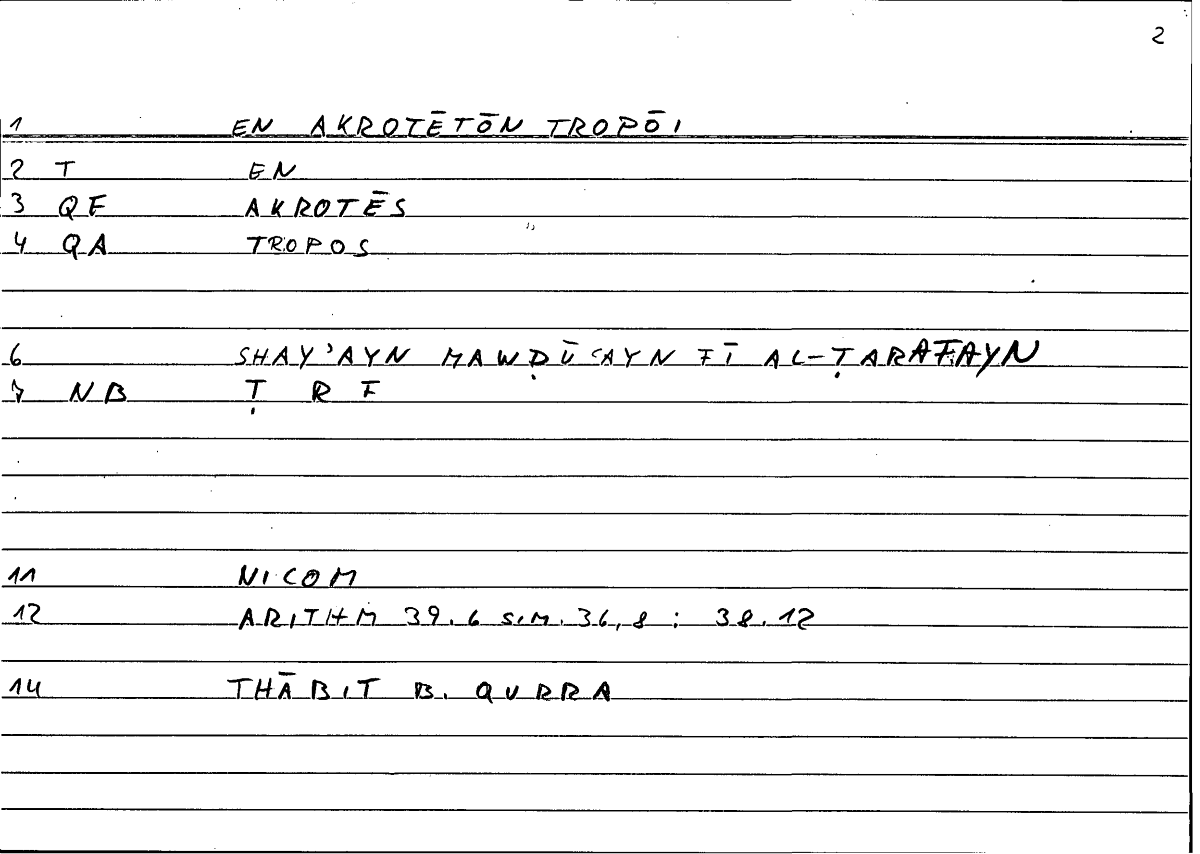 2
1 EN AKROTĒTŌN TROPŌI
2 T EN
3 QE AKROTĒS
4 QA TROPOS
6 SHAY'AYN MAWḌŪʿAYN FĪ AL-ṬARAFAYN
7 NB Ṭ R F
11 NICOM
12 ARITHM 39.6 SIM. 36,8 ; 38.12
14 THĀBIT B. QURRA